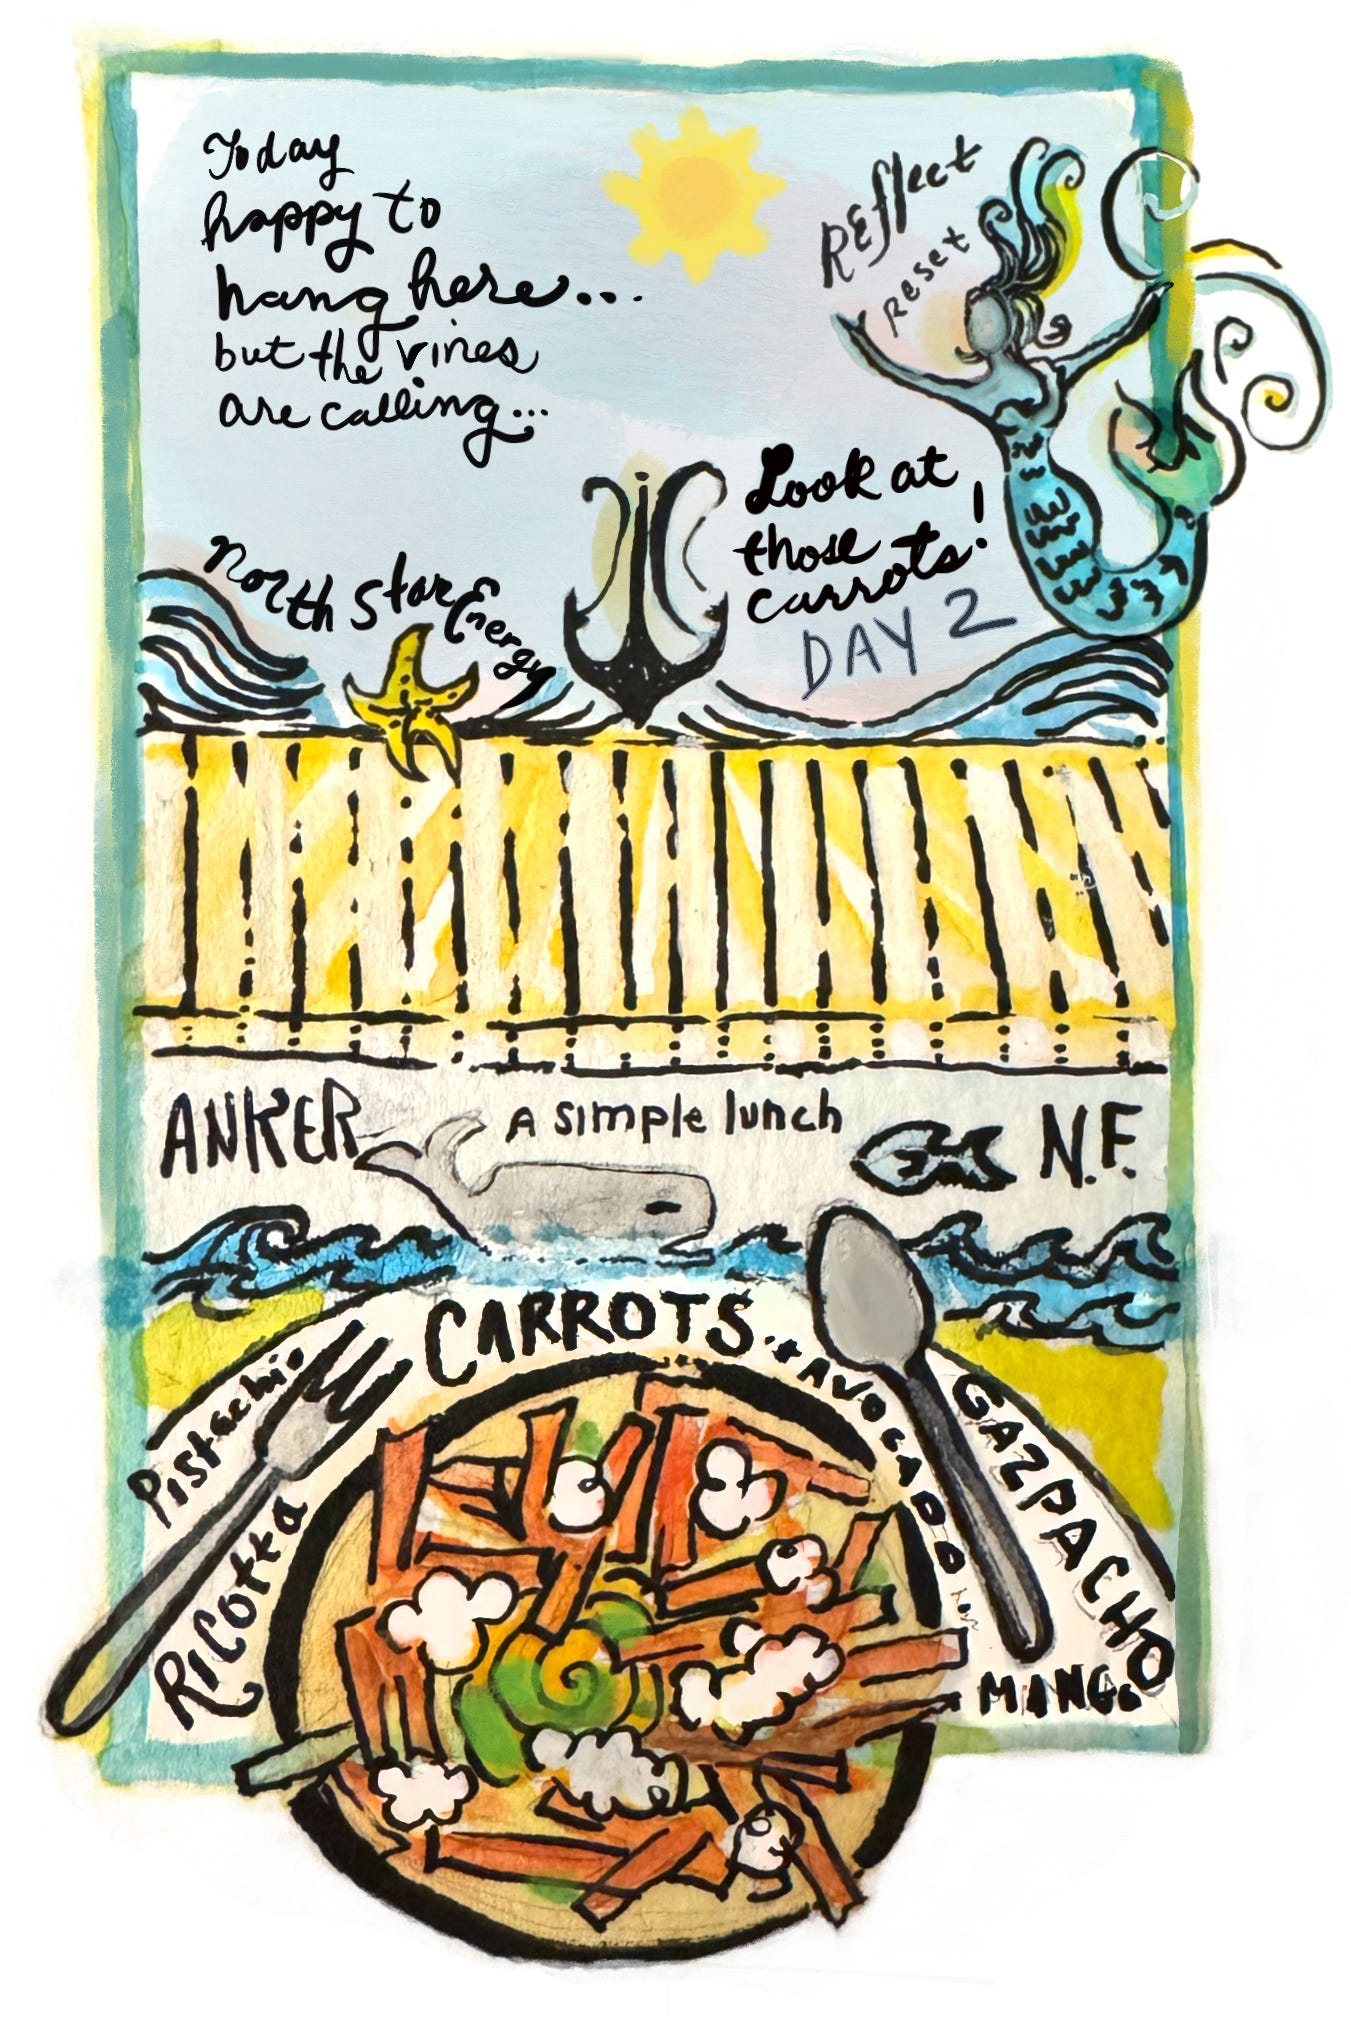 Today
happy to
hang here...
but the vines
are calling...
Reflect
reset
Look at
those
carrots!
DAY 2
North Star Energy
ANKER
A simple lunch
N.F.
CARROTS. + AVOCADO
Pistachio
Ricotta
GAZPACHO